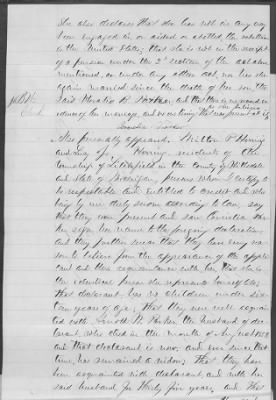 She also declares that she has not in any way
been engaged in, or aided or abetted, the rebellion
in the United States; that she is not in the receipt
of a pension under the 2d section of the act above
mentioned, or under any other act, nor has she
again married since the death of her son, the
said Horatio R. Parker, and that there is no record in
evidence of her marriage, and no one living that was present at it
Parker
Also personally appeared Milton P.
and residents of
township of Litchfield in the county of Hillsdale
and State of Michigan, persons whom I certify to
be respectable and entitled to credit and who
being by me duly sworn according to law, say
that they were present and saw
her sign her name to the foregoing declaration
and they further swear that they have every rea-
son to believe from the appearance of the applic
ant and their acquaintance with her, that she is
the identical person she represents herself to be,
that declarant has no children under six-
teen years of age, that they were well acquain
ted with Parker, the husband of dec
larant who died in the month of
and that declarant is now, and ever since that
time, has remained a widow, That they have
been acquainted with declarant and with her
said husband for thirty five years, and that